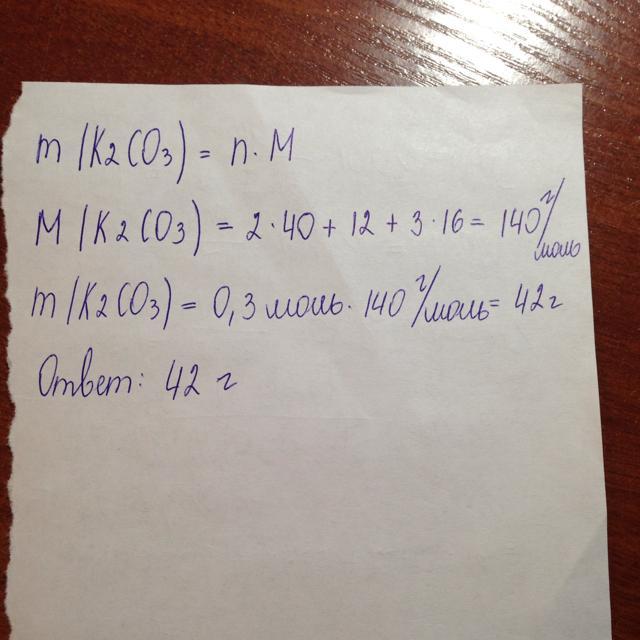 m(K2CO3) = n·M
M(K2CO3) = 2·40 + 12 + 3·16 = 140 г/моль
m(K2CO3) = 0,3 моль · 140 г/моль = 42 г
Ответ: 42 г